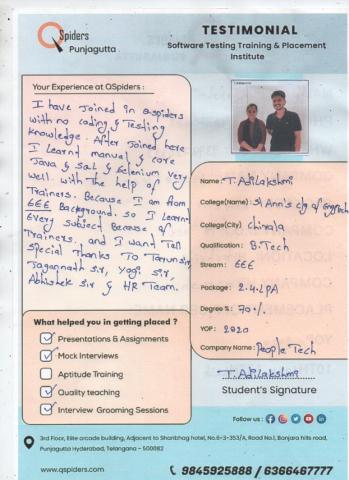 QSpiders
Punjagutta
TESTIMONIAL
Software Testing Training & Placement
Institute
Your Experience at QSpiders :
I have Joined in Qspiders
with no coding & Testing
knowledge. After Joined here
I Learnt manual & core
Java & Sql & Selenium very
well. with the help of
Trainers. Because I am from
EEE Background. so I Learnt
Every Subject Because of
Trainers, and I want Tell
Special Thanks To Tarun sir,
Jagannadh sir, Yogi sir,
Abhishek sir & HR Team.
Name : T. Adilakshmi
College(Name) : St Ann's clg of Engg
College(City) Chirala
Qualification : B.Tech
Stream : EEE
Package : 2.4 LPA
Degree % : 70%
YOP : 2020
Company Name : People Tech
T. Adilakshmi
Student's Signature
What helped you in getting placed ?
Presentations & Assignments
Mock Interviews
Aptitude Training
Quality teaching
Interview Grooming Sessions
Follow us :
3rd Floor, Elite arcade building, Adjacent to Shanbhag hotel, No.6-3-353/A, Road No.1, Banjara hills road,
Punjagutta Hyderabad, Telangana - 500082
www.qspiders.com
9845925888 / 6366467777